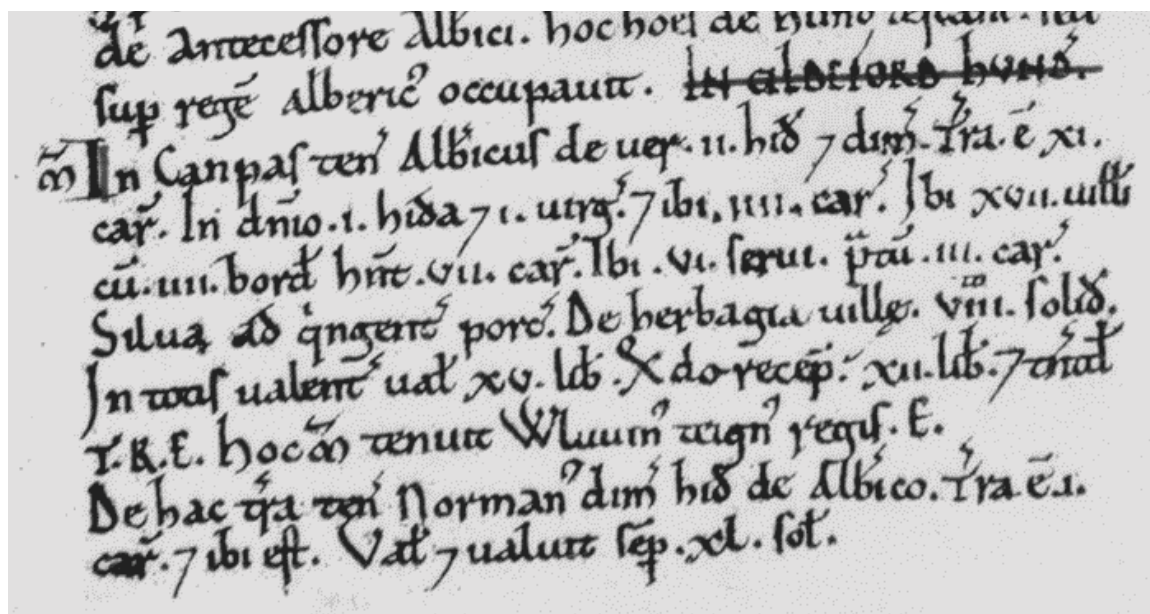 de Antecessore Albici. hoc hoēs de hund
sup regē Albericꝰ occupauit. IN CILDEFORD HVND.
ꝳ In Canpas teń Albicus de uer. ii. hid̄ ⁊ dim̄. T̄ra. ē xi.
car̄. In dn̄io. i. hida ⁊ i. uirḡ. ⁊ ibi. iiii. car̄. Ibi xvii. uilli
cū. iiii. bord̄ hn̄t. vii. car̄. Ibi. vi. serui. p̄tū. iii. car̄.
Silua ad qͥngent̄ porc̄. De herbagia uille. viii. solid̄.
In totis ualent̄ ual̄ xv. lib̄. Qdo recep̄. xii. lib̄. ⁊ tn̄td̄
T.R.E. hoc ꝳ tenuit Wluuinꝰ teignꝰ regis. E.
De hac tr̄a teń Normanꝰ dim̄ hid̄ de Albico. T̄ra ē. i.
car̄. ⁊ ibi est. Val̄ ⁊ ualuit sēp. xl. sol̄.